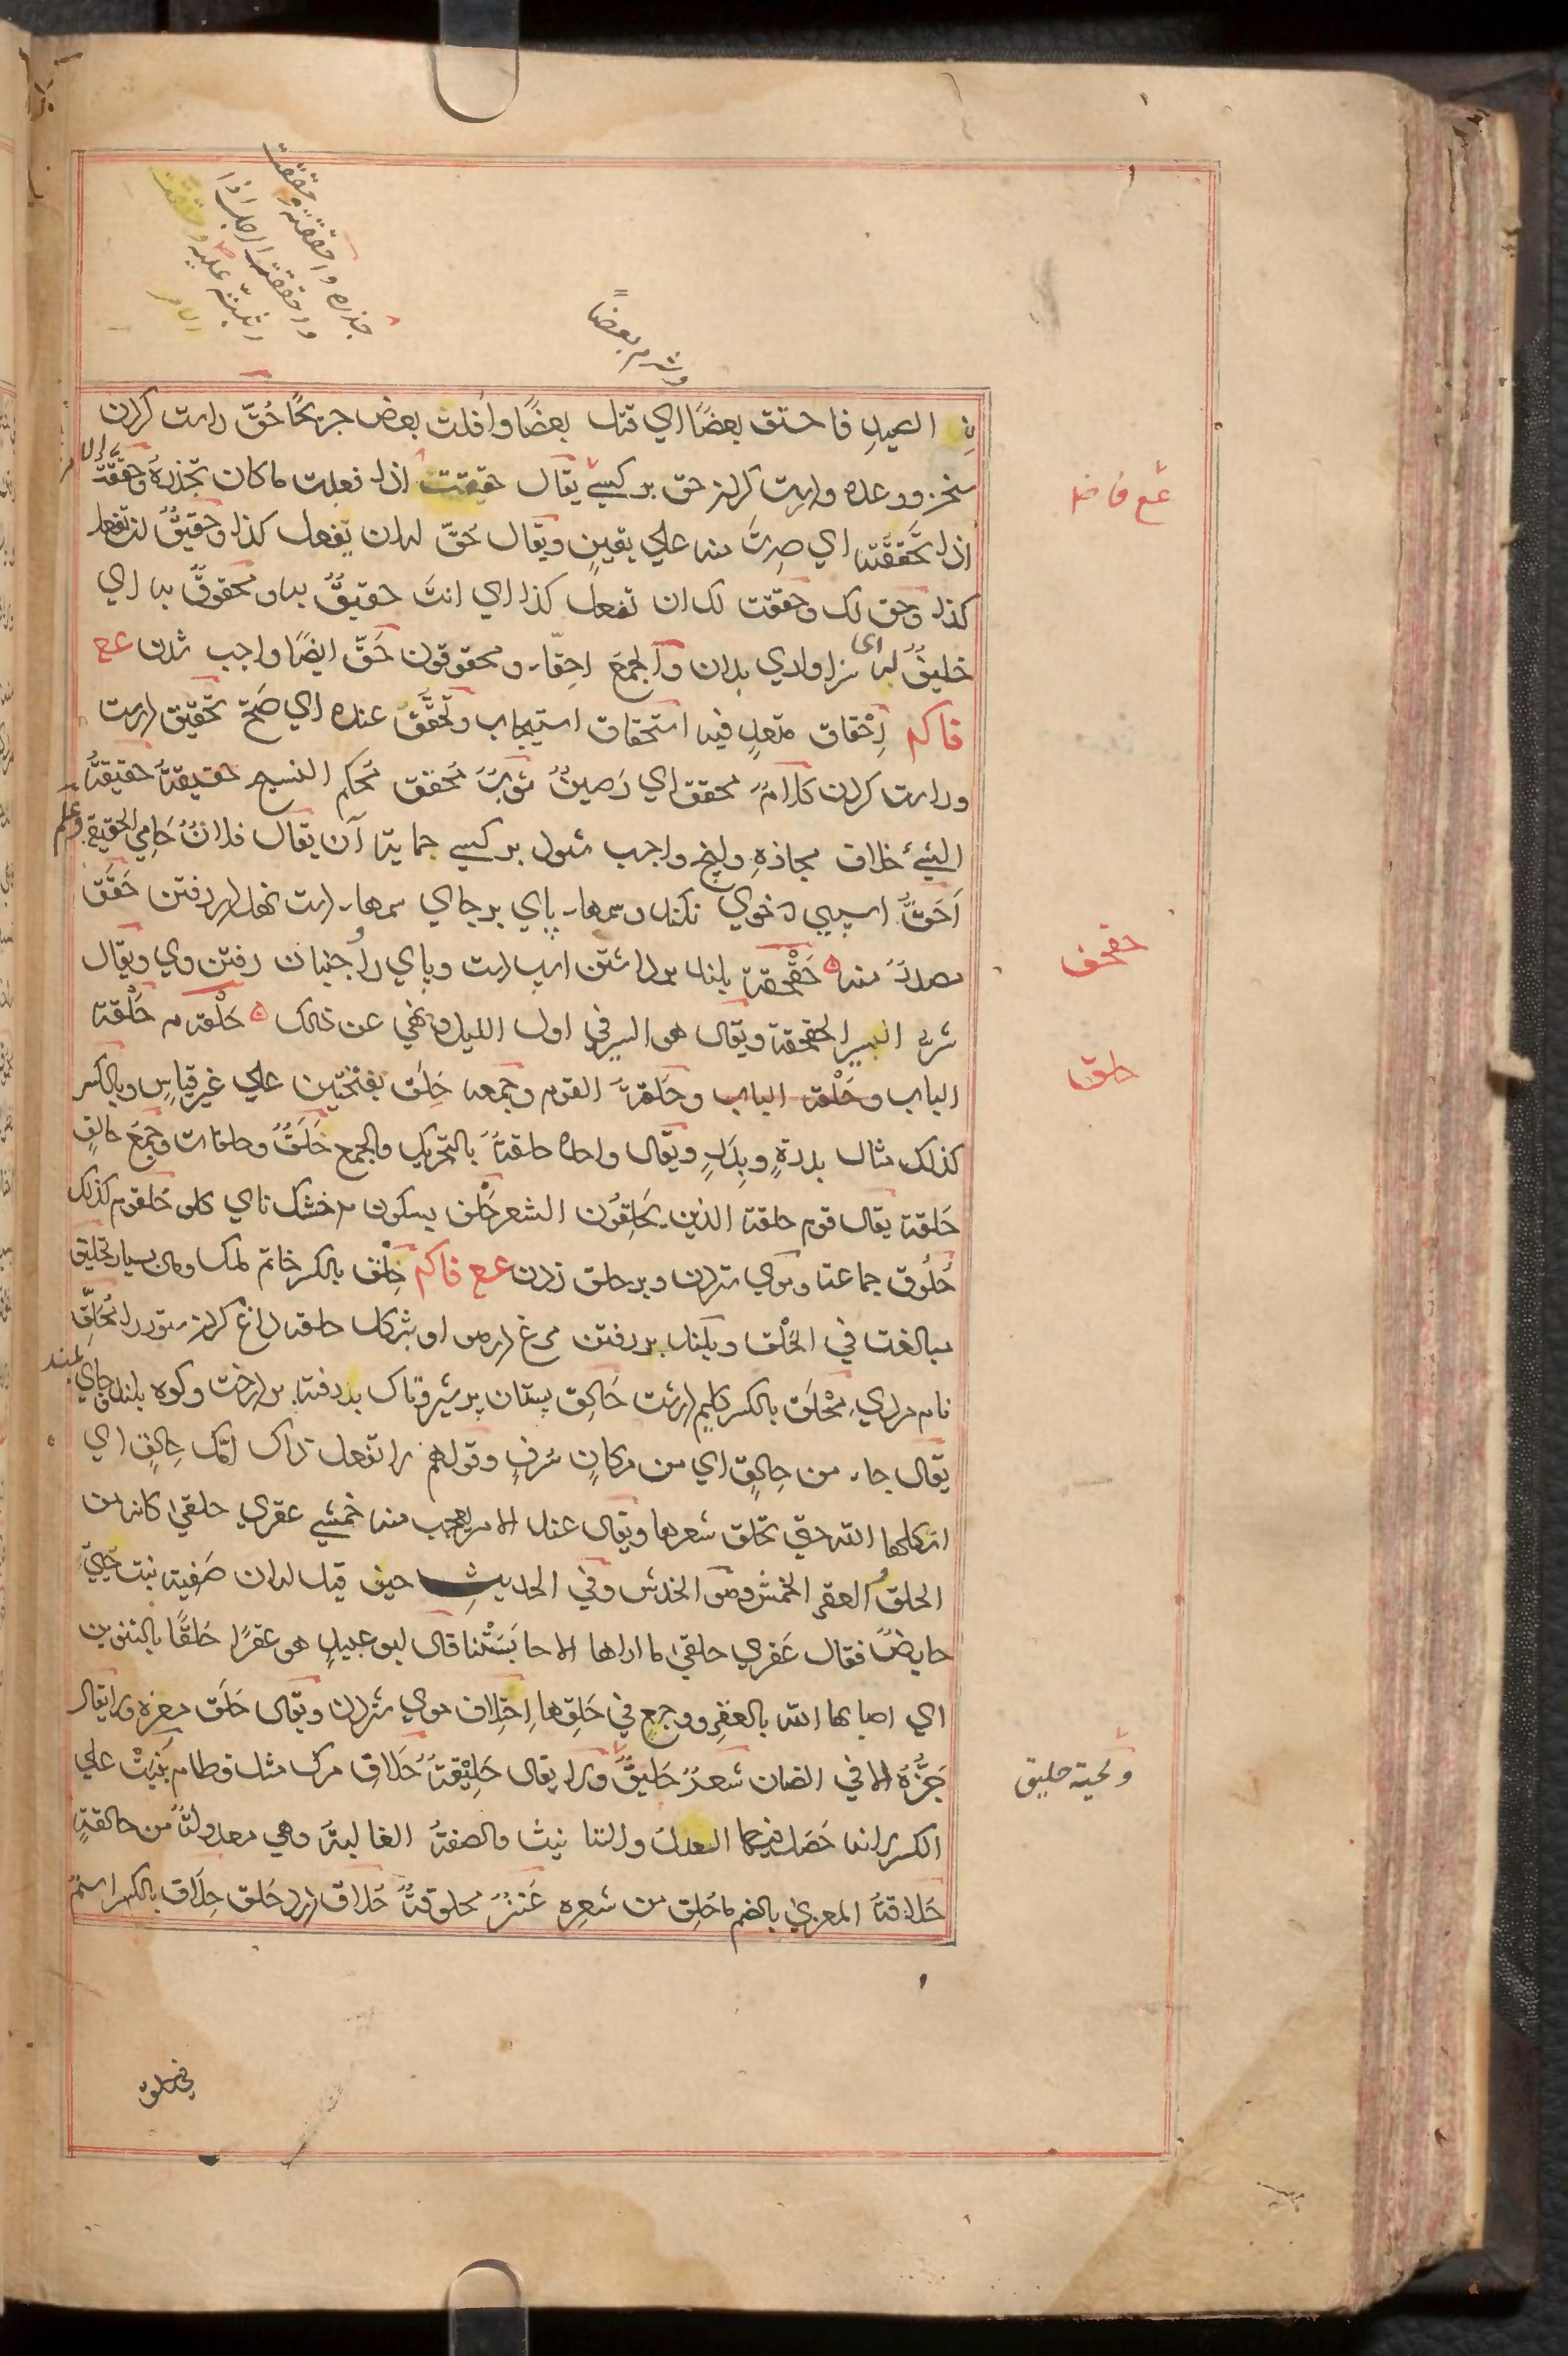 حذره واحققته وحققت
وحققت الرجل اذا
اثبته عليه وحققت
الامر
وشرم بعضاً
الصيدِ فاحتق بعضًا اي قتل بعضًا وافلت بعض جريحًا حُقّ راست كردن
سخن ووعده وراست كردن حق بر كسے يقال حققت اذا فعلت ما كان تحذرهُ وحققتُه
الامر
عع فا ضا
اذا تحَقَّقتَه اي صِرتَ منه علي يقينٍ ويقال حُقّ له ان يفعل كذا وحقيقٌ ان تفعل
كذا وحق لك وحققت لك ان تفعل كذا اي انتَ حقيقٌ به ومحقوقٌ به اي
خليقٌ له اى سزاواري بدان والجمعَ احِقّاء ومحقوقون حَقّ ايضًا واجب شدن عع
فا كم اِحْقاق متعدٍ فيه استحقاق استيجاب وتحقَّق عنده اي صَحّ تحقيق راست
وراست كردن كلامٌ محقق اي رَصينٌ ثوبٌ محقق مُحكم النسيج حقيقةُ حقيقةُ
الشيءِ خلاف مجازهِ وانچ واجب شود بر كسے حمايت آن يقال فلانٌ حَامِي الحقيقة وعلم
اَحَقُّ اسپيى كه خوي نكند وسمهاء پاي بر جاي سمهاء دست نهد در رفتن حَقَق
مصدرٌ منه حَقْحقة بلند برداشتن اسپ دست وپاي را وجنبان رفتن وي ويقال
حقحق
شرّ السير الحقحقة ويقال هو السير في اول الليل ونُهي عن ذلك حَلْقة م حَلْقة
الباب وحَلْقة الباب وحَلقةَ القوم وجمعه حَلَق بفتحتين علي غير قياسٍ وبالكسر
حلق
كذلك مثال بدرةٍ وبِدَرٍ ويقال واحده حلقةَ بالتحريك والجمع حَلَقٌ وحلقات وجمعَ حالقٍ
حَلقة يقال قوم حلقة الذين يحَلِقُون الشعر حَلْق بسكون م خشك ناي كلو حُلقوم كذلك
حُلُوق جماعت وموي ستردن وبر حلق زدن عع فاكم حِلْق بالكسر خاتم ملك ومال بسيار تحليق
مبالغت في الحَلْق وبلند بر رفتن مرغ در هوا وبشكل حلقه داغ كردن ستور را مُحلِّق
نام مردي مِحْلَق بالكسر كليم درشت حَالِق پستان پر شير وتاك بر رفته بر درخت وكوه بلند وجاي بلند
يقال جاء من حالِقٍ اي من مكانٍ مُشرفٍ وقولهم لا تفعل ذاك امّك حالِقٍ اي
اثكلها اللّه حتى تحلق شعرها ويقال عند الامر يعجب منه خمشي عقري حلقيٰ كانه من
الحلقُ والعقر الخمش وهو الخدش وفي الحديث حين قيل له ان صَفية بنت حييّ
حايضٌ فقال عَقري حلقيٰ ما اراها الا حابَستْنا قال ابو عبيدٍ هو عقرًا حَلقًا بالتنوين
اي اصابها اللّه بالعقر ووجعٍ في حَلقِها اِحتِلاق موي ستردن ويقال حَلَق معزه ولا يقال
جَزَّهُ الا في الضان شعرٌ حَليقٌ ولا يقال حَلِيْقةٌ حَلاق مرك مثل قطام بُنِيَتْ علي
ولحية حليق
الكسر لانها حَصَل فيها العدل والتانيث والصفةُ الغالبةُ وهي معدولةٌ من حالقةٍ
حُلاقةُ المعزيٰ بالضم ما حُلِق من شعرِه عَنزٌ محلوقةٌ حُلاق درد حَلق حِلاق بالكسر اسمٌ